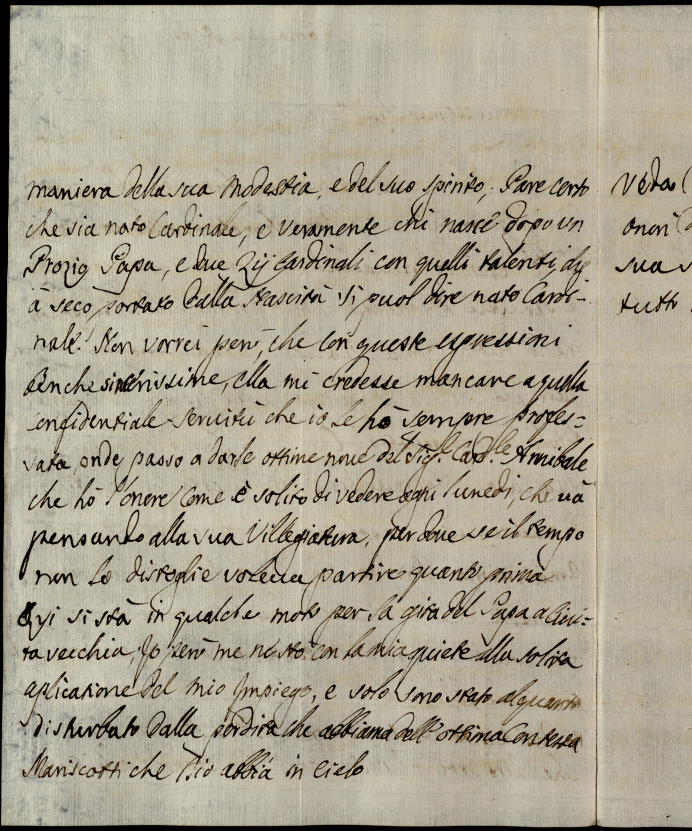 maniera della sua modestia, e del suo spirito; Pare certo
che sia nato Cardinale, e veramente chi nasce dopo un
Prozio Papa, e due Zij Cardinali con quelli talenti, che
à seco portato dalla Nascità si puol dire nato Cardi-
nale. Non vorrei però, che con queste espressioni
benche sincerissime, ella mi credesse mancare a quella
confidentiale servitù che io le hò sempre profes=
sata onde passo a darle ottime nuove del Sig.r Card.le Annibale
che hò l'onore come è solito di vedere ogni lunedi, che và
pensando alla sua Villegiatura, per dove se il tempo
non lo distoglie voleva partire quanto prima
Qui si stà in qualche moto per la gita del Papa a Civi=
ta vecchia, Io però me ne sto con la mia quiete alla solita
aplicatione del mio Impiego, e solo sono stato alquanto
disturbato dalla perdita che abbiamo dell'ottima Contessa
Mariscotti che Dio abbia in Cielo
Veda
onori
sua
tutti